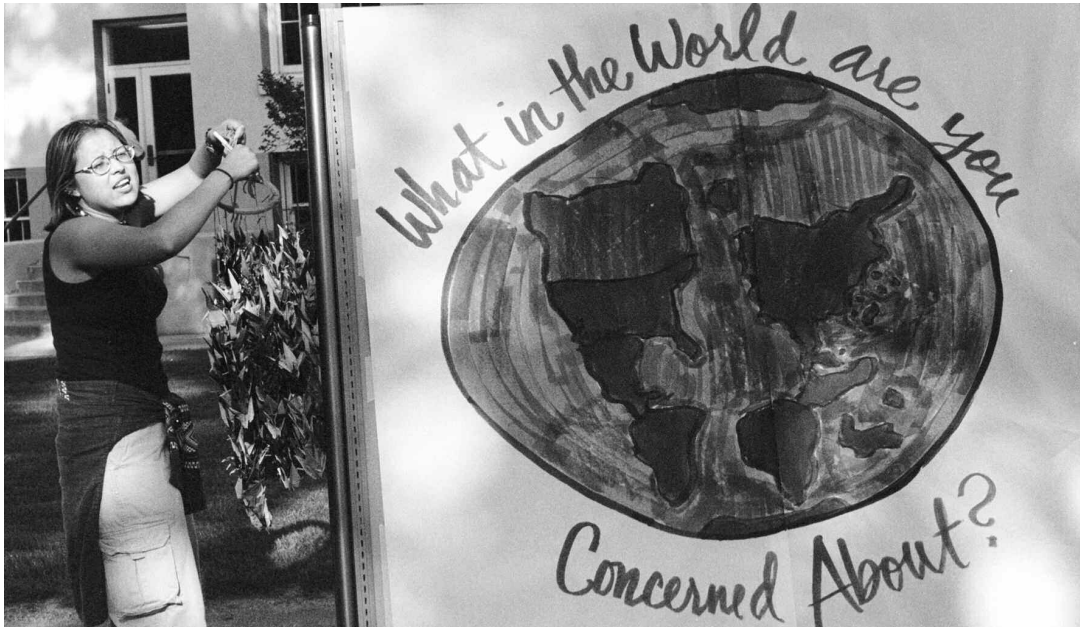 What in the World are you
Concerned About?